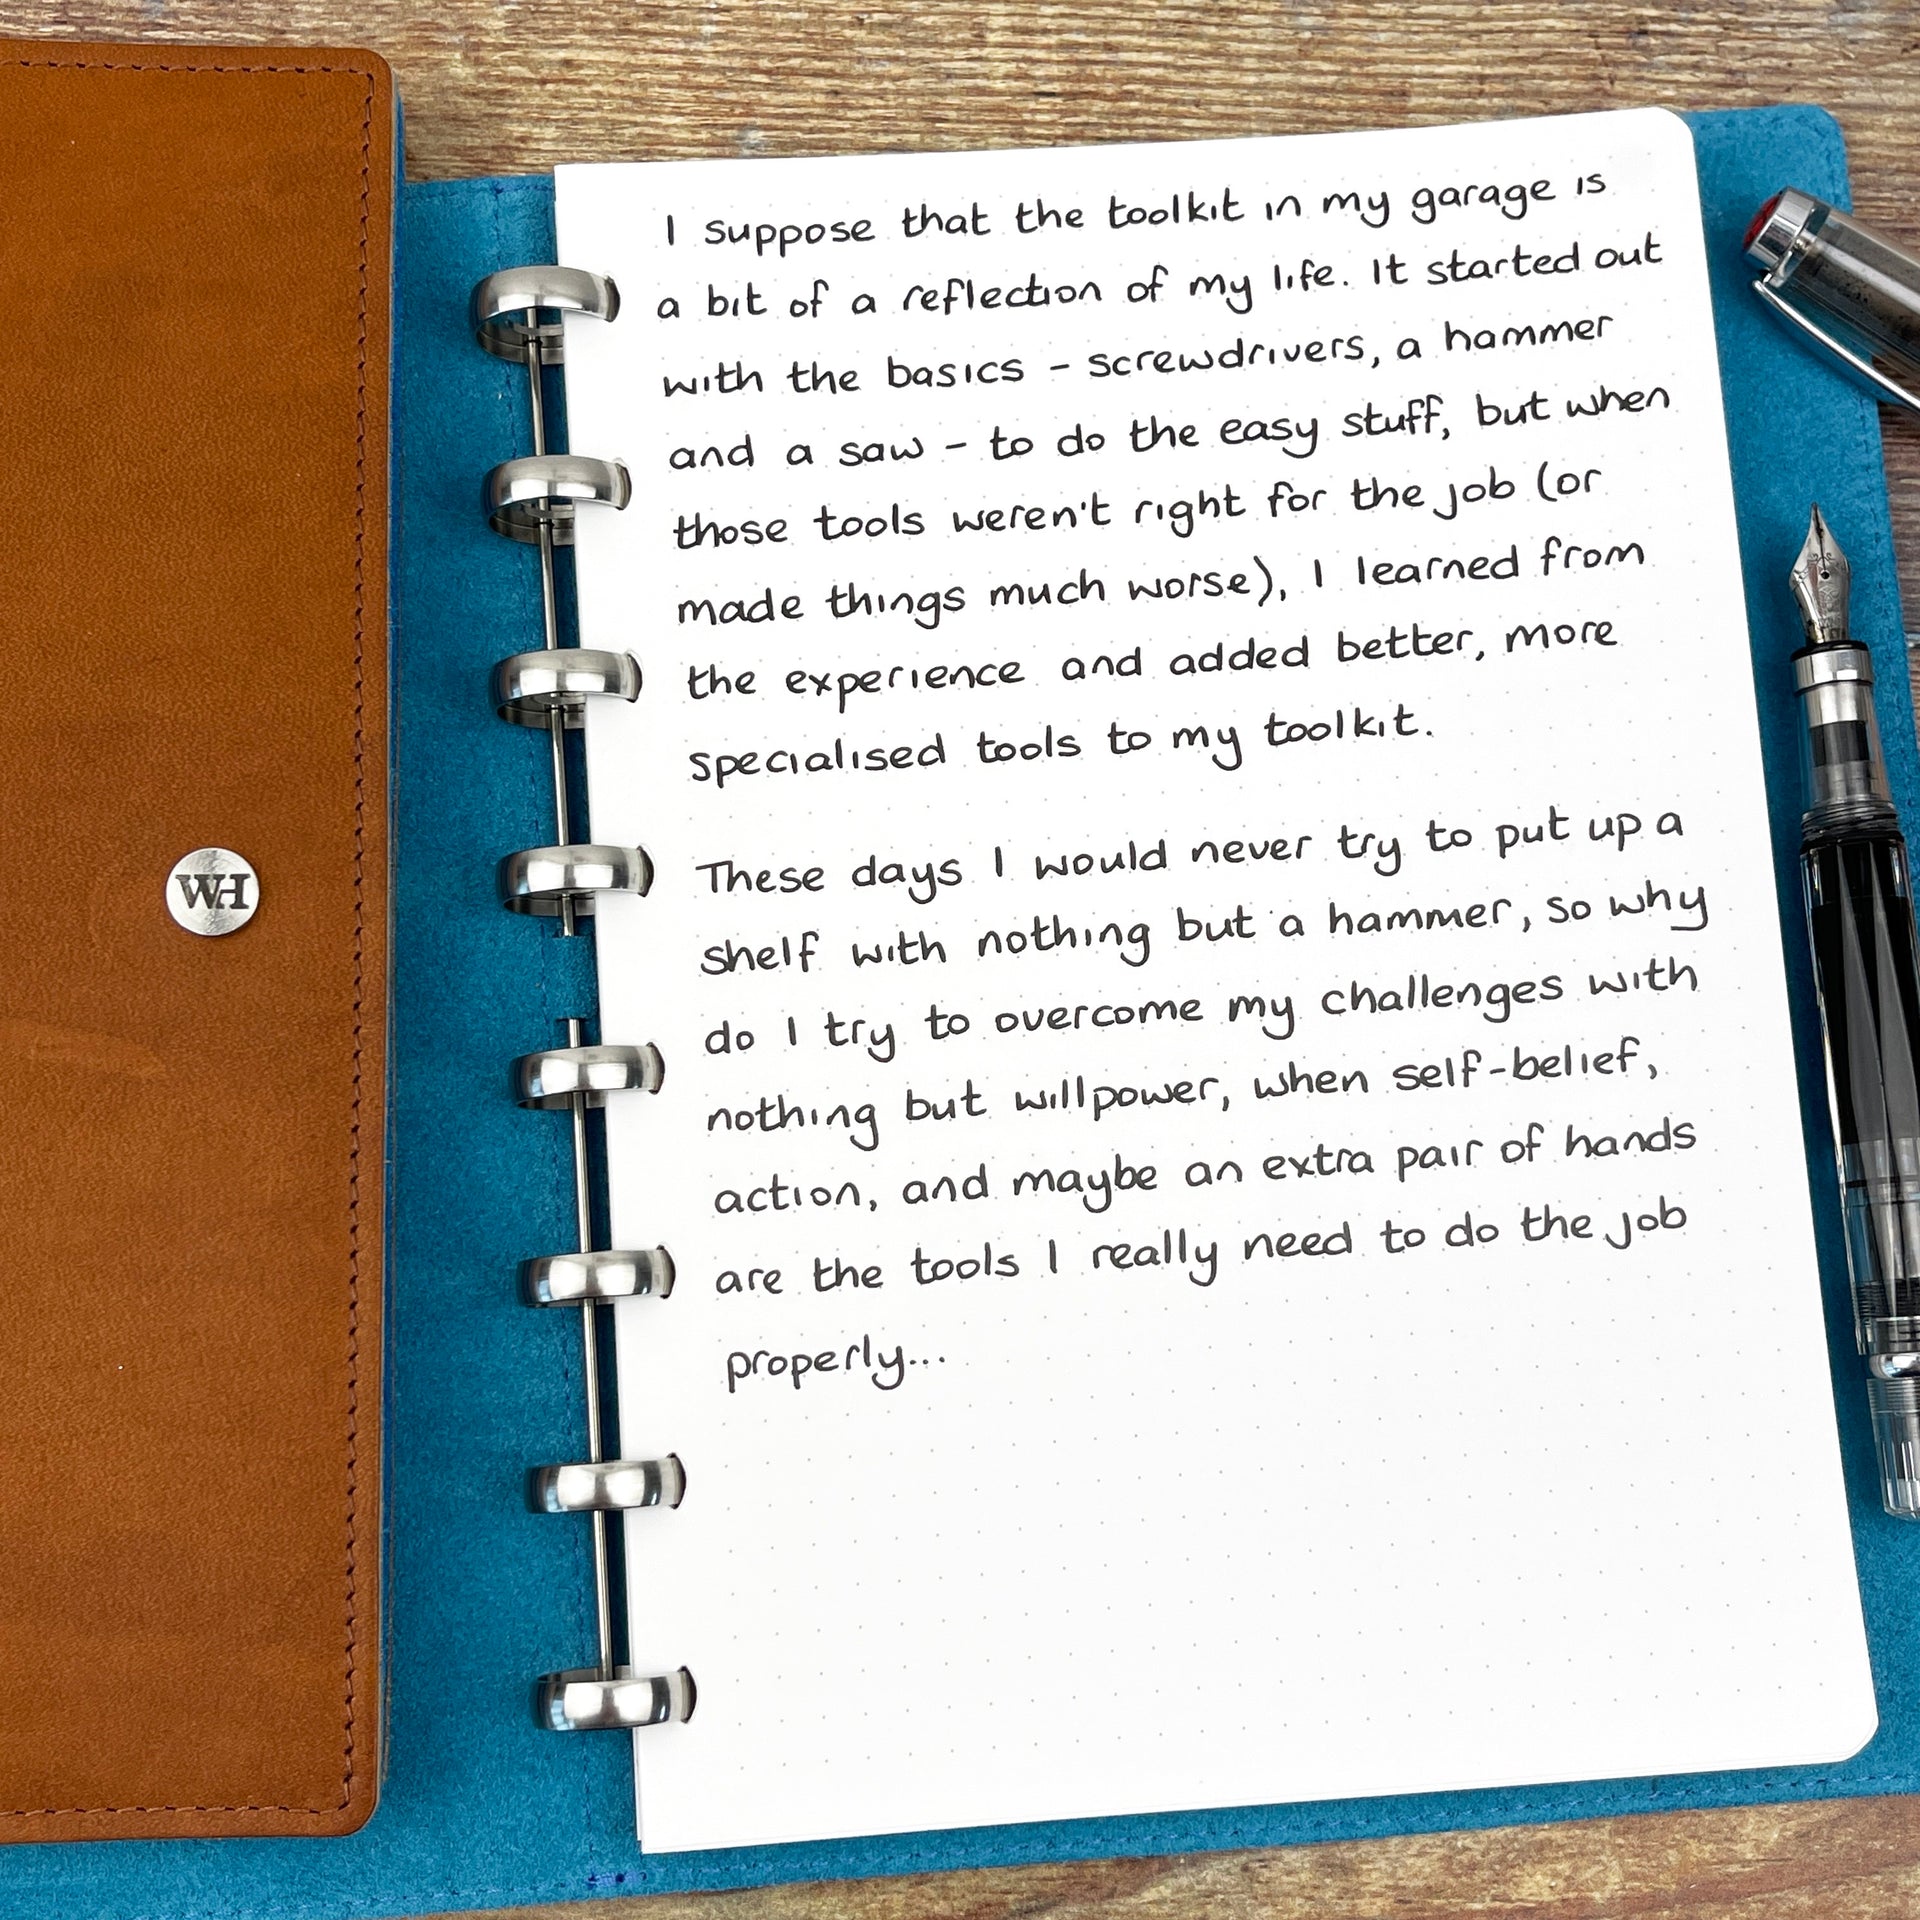 WH
I suppose that the toolkit in my garage is
a bit of a reflection of my life. It started out
with the basics - screwdrivers, a hammer
and a saw - to do the easy stuff, but when
those tools weren't right for the job (or
made things much worse), I learned from
the experience and added better, more
specialised tools to my toolkit.
These days I would never try to put up a
shelf with nothing but a hammer, so why
do I try to overcome my challenges with
nothing but willpower, when self-belief,
action, and maybe an extra pair of hands
are the tools I really need to do the job
properly...